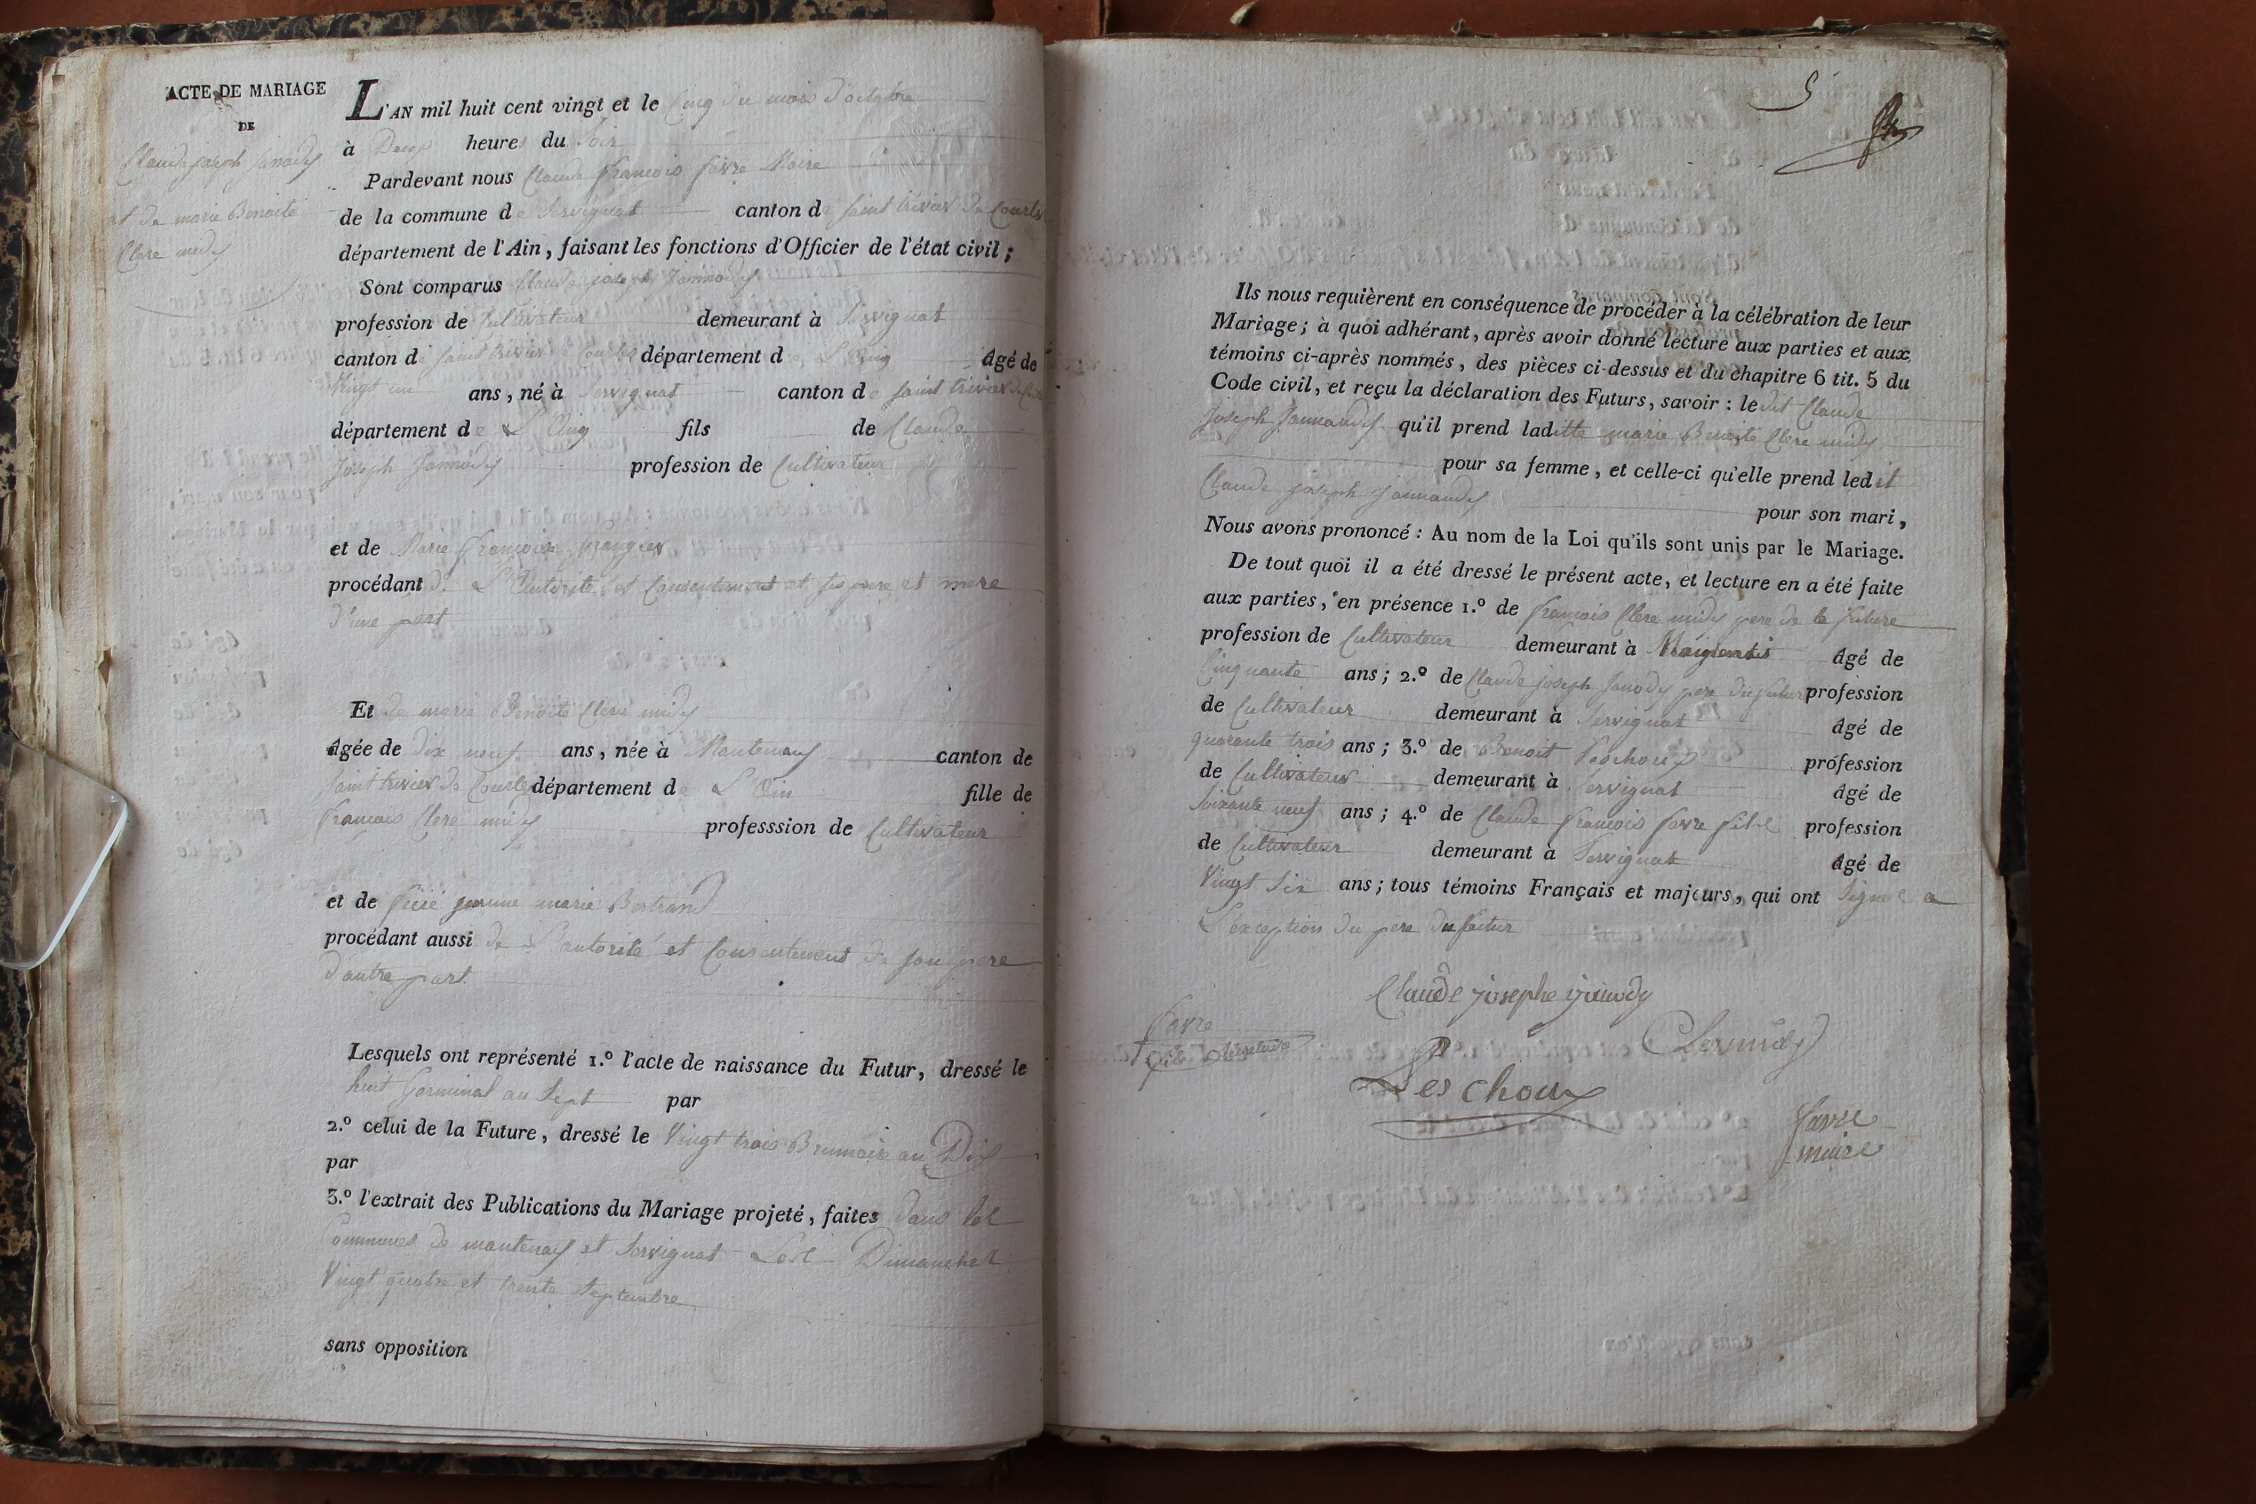 ACTE DE MARIAGE
DE
Claude joseph Janody
et de marie Benoite
Clere midy
L'AN mil huit cent vingt et le Cinq du mois d'octobre
à Deux heures du Soir
Pardevant nous Claude françois favre Maire
de la commune de Servignat canton de saint trivier de Courtes
département de l'Ain, faisant les fonctions d'Officier de l'état civil;
Sont comparus Claude joseph
profession de Cultivateur demeurant à Servignat
canton de saint trivier de Courtes département de L'Ain Agé de
Vingt un ans, né à Servignat canton de saint trivier de
département de L'Ain fils de Claude
Joseph profession de Cultivateur
et de Marie françoise
procédant de L'Autorité et Consentement et ses pere et mere
d'une part
Et de marie Benoite Clere midy
Agée de dix neuf ans, née à Mantenay canton de
saint trivier de Courtes département de L'Ain fille de
françois Clere midy professsion de Cultivateur
et de feüe jeanne marie Bertrand
procédant aussi de L'autorité et Consentement de son pere
d'autre part
Lesquels ont représenté 1.º l'acte de naissance du Futur, dressé le
huit Germinal an Sept par
2.º celui de la Future, dressé le Vingt trois Brumaire an Dix
par
3.º l'extrait des Publications du Mariage projeté, faites dans les
Communes de mantenay et Servignat Les Dimanches
Vingt quatre et trente Septembre
sans opposition
5
Ils nous requièrent en conséquence de procéder à la célébration de leur
Mariage; à quoi adhérant, après avoir donné lecture aux parties et aux
témoins ci-après nommés, des pièces ci-dessus et du chapitre 6 tit. 5 du
Code civil, et reçu la déclaration des Futurs, savoir: ledit Claude
Joseph qu'il prend laditte marie Benoite Clere midy
pour sa femme, et celle-ci qu'elle prend ledit
Claude joseph pour son mari,
Nous avons prononcé: Au nom de la Loi qu'ils sont unis par le Mariage.
De tout quoi il a été dressé le présent acte, et lecture en a été faite
aux parties, en présence 1.º de françois Clere midy pere de la future
profession de Cultivateur demeurant à Agé de
Cinquante ans; 2.º de Claude joseph Janody pere du futur profession
de Cultivateur demeurant à Servignat Agé de
quarante trois ans; 3.º de Benoit profession
de Cultivateur demeurant à Servignat Agé de
Soixante neuf ans; 4.º de Claude françois favre fils profession
de Cultivateur demeurant à Servignat Agé de
Vingt Six ans; tous témoins Français et majeurs, qui ont Signé a
L'exception du pere du futur
Claude josephe
favre
Cleremidy
fils
Deschoux
favre
maire